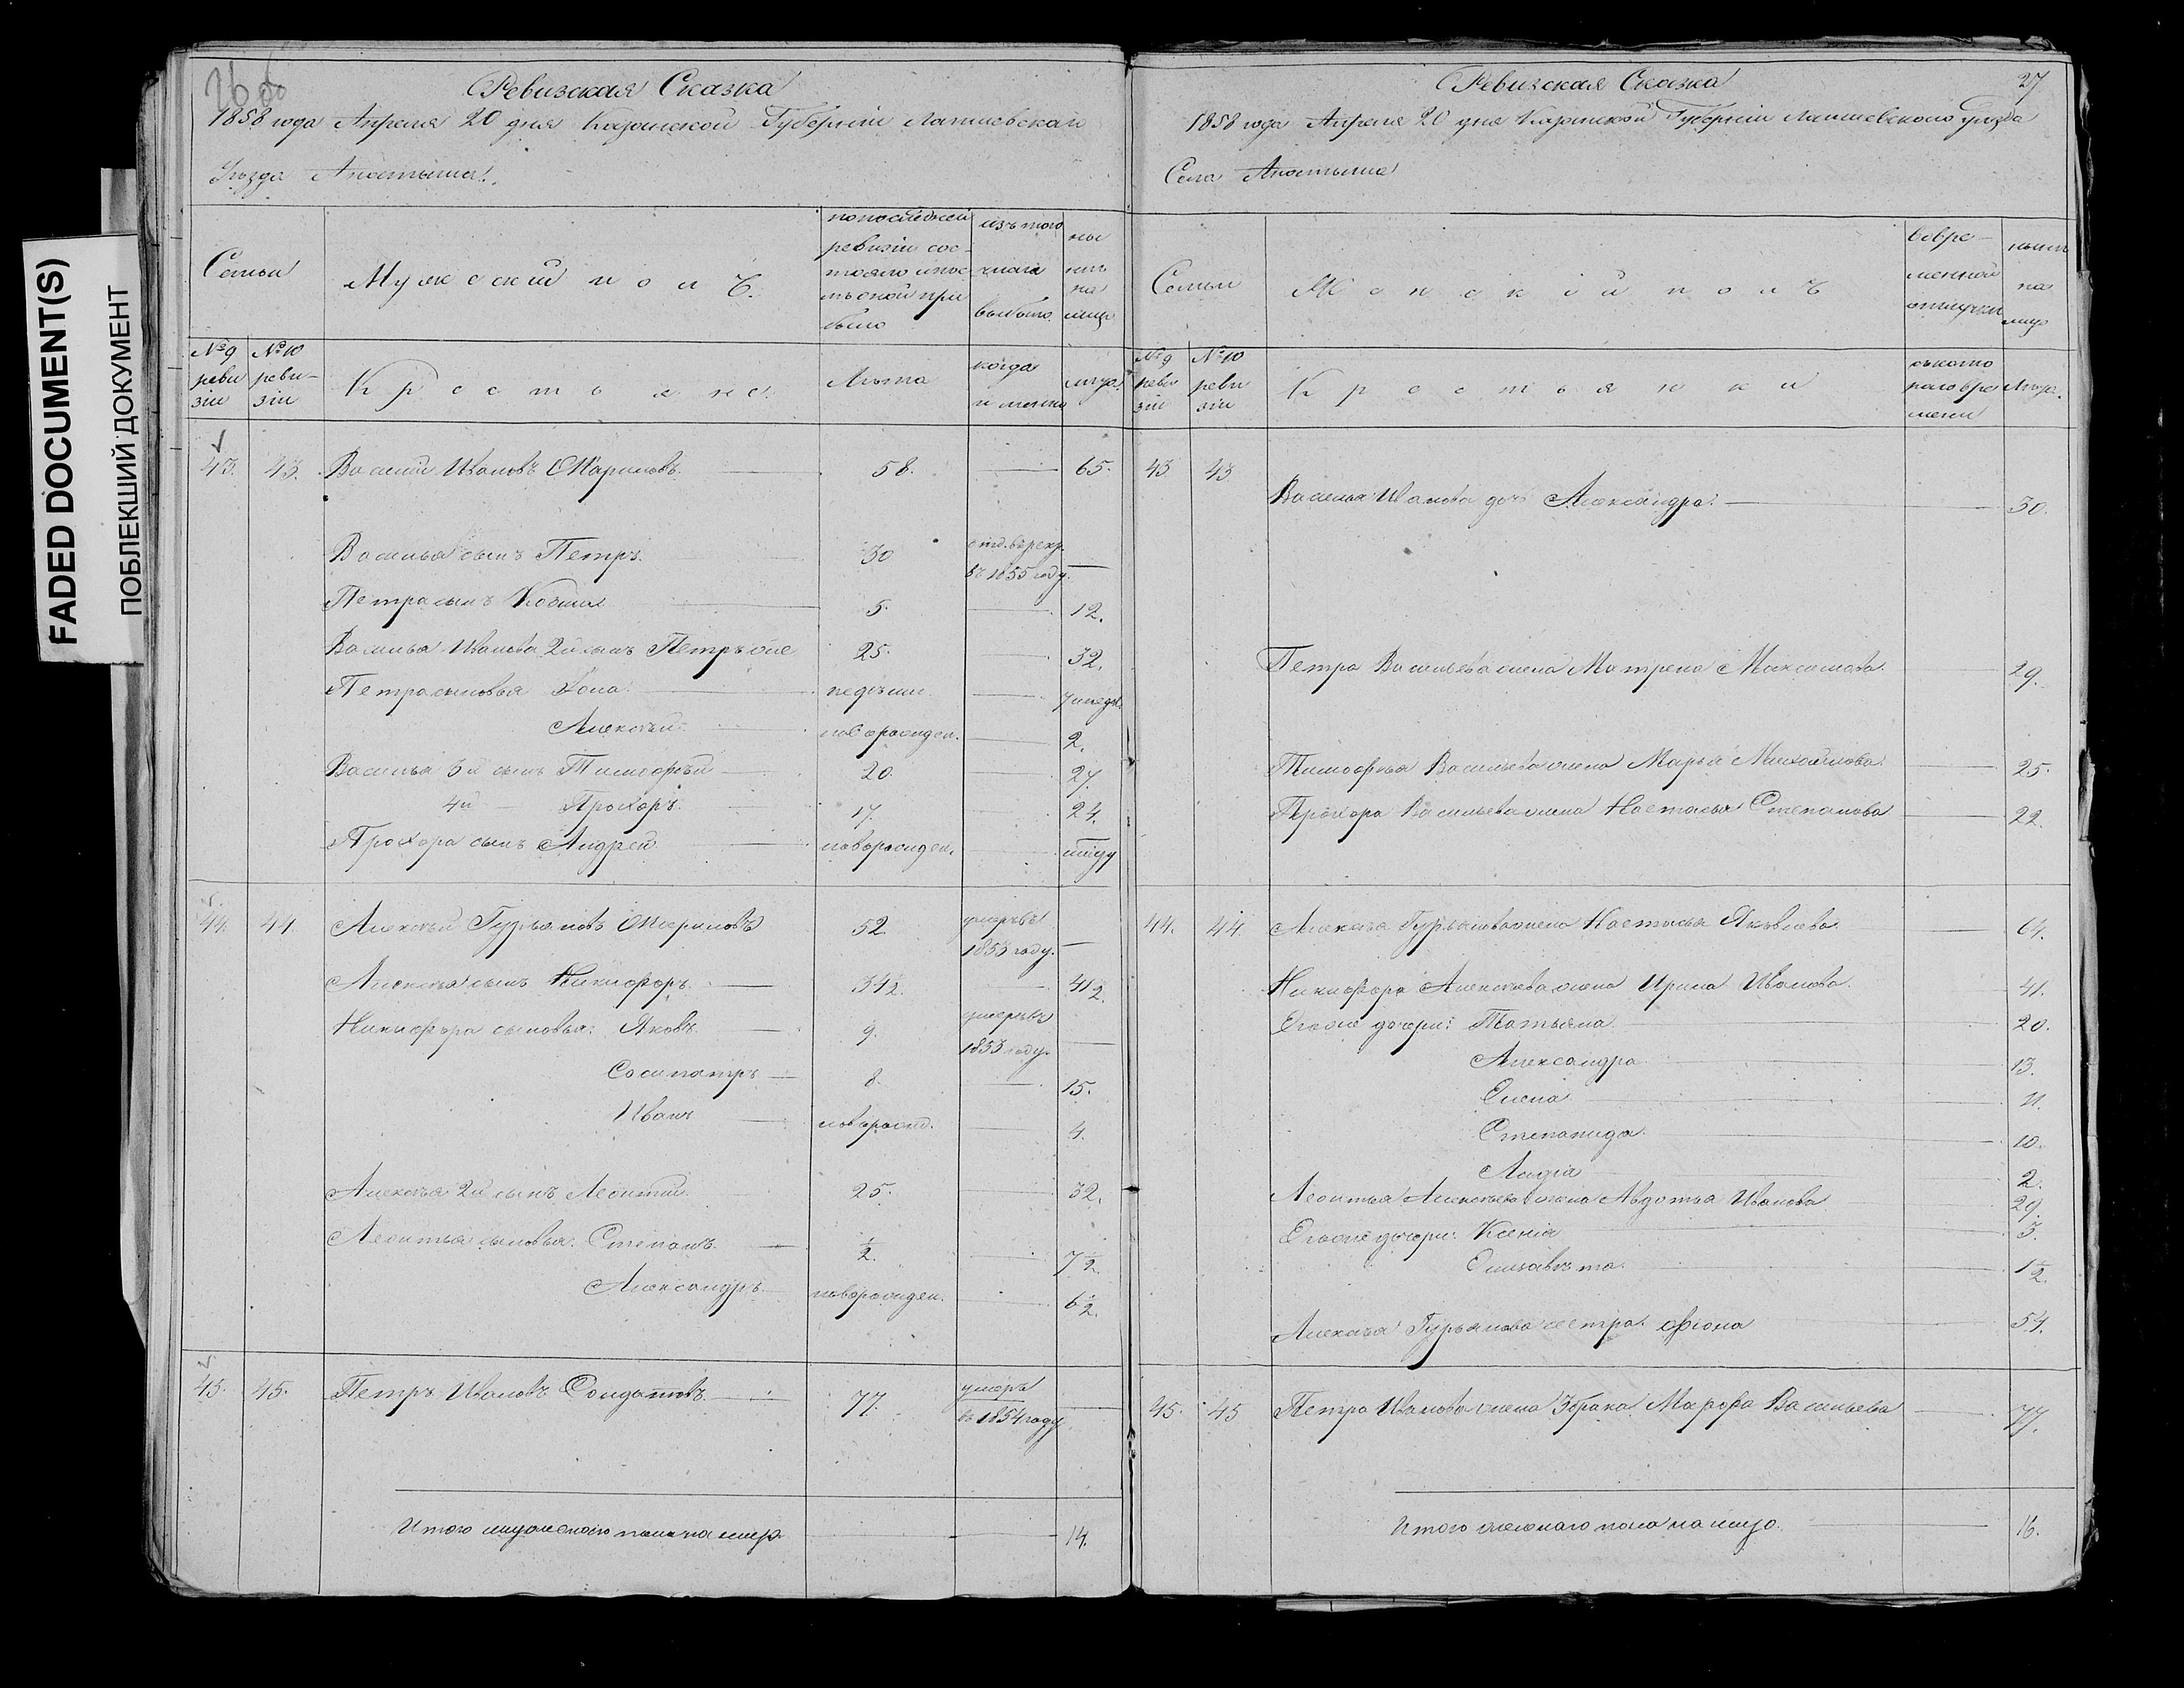 FADED DOCUMENT(S)
ПОБЛЕКШИЙ ДОКУМЕНТ
26 об
Ревизская Сказка
1858 года Апреля 20 дня Казанской Губерніи Лаишевскаго
Уѣзда Анатыша.
Семьи
Мужескій полъ.
по последней
ревизіи сос-
тояло и пос-
лѣ оной при
было
изъ того
числа
выбыло
ны
нѣ
на
лицо
№ 9
реви
зіи
№ 10
реви-
зіи
Крестьяне.
Лѣта
когда
и менно
лѣта
43. 43. Василій Ивановъ 58. 65.
Василья сынъ Петръ. 30 отд. въ рекр.
въ 1855 году.
Петра сынъ Козма 5. 12.
Василья Иванова 2й сынъ Петръ же 25. 32.
Петра сыновья 7 недѣль
Алексѣй новорожден. 2.
Василья 3й сынъ Тимофѣй 20. 27.
4й — Прохоръ. 17. 24.
Прохора сынъ Андрей новорожден.
44. 44. Алексѣй Гурьяновъ 52 умеръ въ
1853 году.
Алексѣя сынъ Никифоръ. 34½. 41½.
Никифора сыновья: Яковъ. 9. умеръ въ
1853 году.
Сосипатръ 8. 15.
Иванъ новорожд. 4.
Алексѣя 2й сынъ Леонтій. 25. 32.
Леонтья сыновья: Степанъ. ½. 7½.
Александръ новорожден. 6½.
45. 45. Петръ Ивановъ Солдатовъ 77. умеръ
въ 1854 году
Итого мужескаго пола на лицо 14.
27
Ревизская Сказка
1858 года Апреля 20 дня Казанской Губерніи Лаишевскаго уѣзда
Села Анатыша
Семьи
Женскій полъ
вовре-
менной
отлучки
нынѣ
на
лицо
№ 9
реви
зіи
№ 10
реви
зіи
Крестьянки
съ како
го вре
мени
Лѣта.
43 43
Василья Иванова дочь Александра. 30.
Петра Васильева жена Матрена Максимова. 29.
Тимофѣя Васильева жена Марья Михайлова. 25.
Прохора Васильева жена Настасья Степанова 22.
44. 44 Алексѣя Гурьянова жена Настасья Яковлева. 64.
Никифора Алексѣева жена Ирина Иванова. 41.
Его же дочери: Татьяна 20.
Александра 13.
Елена 11.
Степанида 10.
Лидія 2.
Леонтья Алексѣева жена Авдотья Иванова 29.
Его же дочери: Ксенія 3.
Елизавѣта. 1½.
Алексѣя Гурьянова сестра 54.
45. 45 Петра Иванова жена 3 брака Марфа Васильева 77.
Итого женскаго пола на лицо. 16.